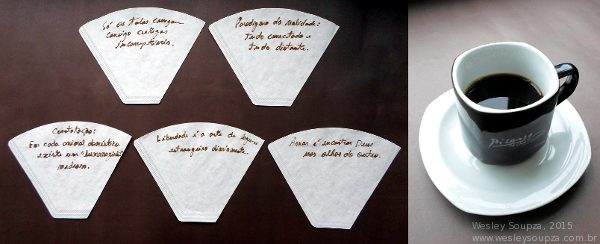 Só os tolos carregam
consigo certezas
incorruptíveis.
Paradigma da realidade:
tudo conectado e
tudo distante.
Constatação:
Em cada animal doméstico
existe um "humanozinho"
medroso.
Liberdade é a arte de
estrangeiro diariamente.
Amar é encontrar Deus
nos olhos do outro.
Picasso
Wesley Soupza, 2015
www.wesleysoupza.com.br